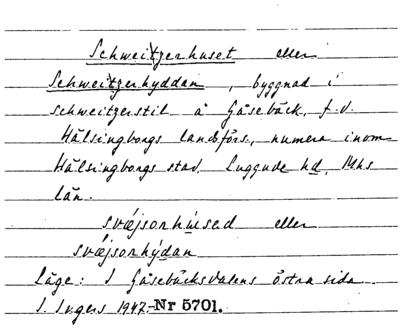 Schweitzerhuset eller
Schweitzerhyddan, byggnad i
schweitzerstil å Gåsebäck, f.d.
Hälsingborgs landsförs., numera inom
Hälsingborgs stad. Luggude hd, Mhs
län.
svæjsorhúsed eller
svæjsorhýdan
Läge: I Gåsebäcksdalens östra sida
I. Ingers 1947. Nr 5701.